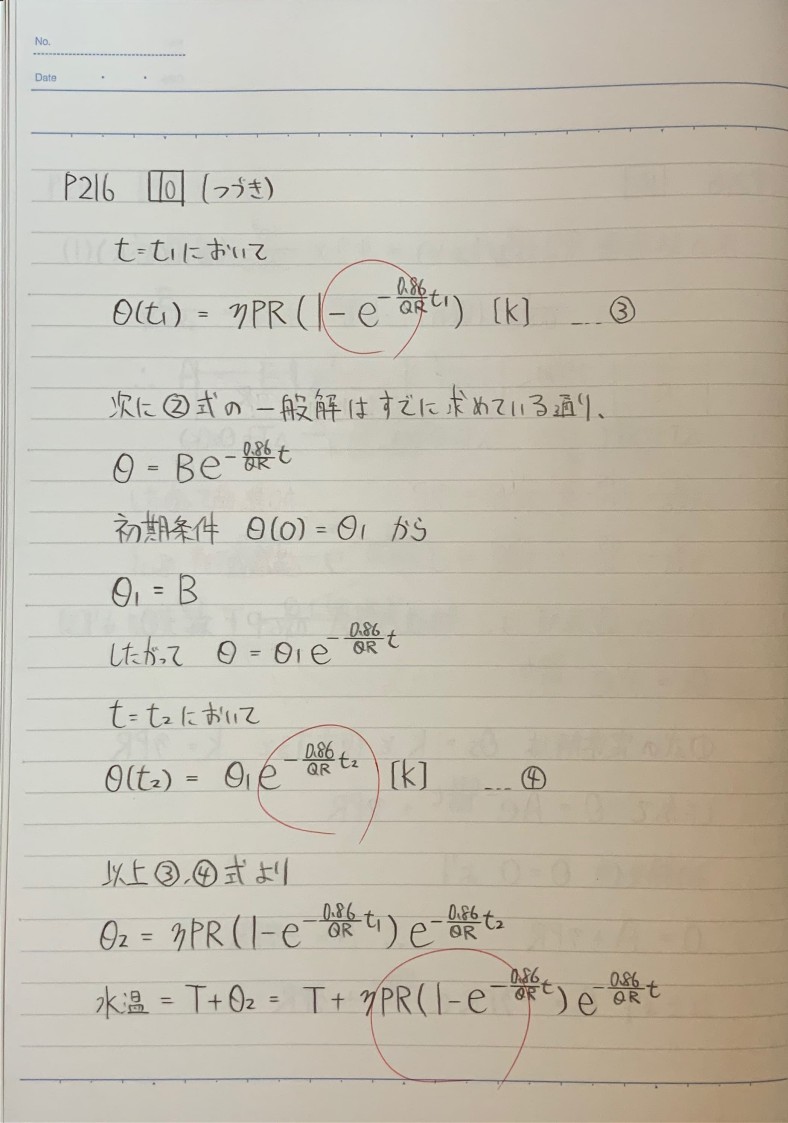 No.
Date
P216 10 (つづき)
t=t₁において
θ(t₁) = ηPR(1-e^{-\frac{0.86}{QR}t₁}) [k] .... ③
次に②式の一般解はすでに求めている通り、
θ = Be^{-\frac{0.86}{QR}t}
初期条件 θ(0) = θ₁ から
θ₁ = B
したがって θ = θ₁e^{-\frac{0.86}{QR}t}
t=t₂において
θ(t₂) = θ₁e^{-\frac{0.86}{QR}t₂} [k] .... ④
以上③、④式より
θ₂ = ηPR(1-e^{-\frac{0.86}{QR}t₁})e^{-\frac{0.86}{QR}t₂}
水温 = T+θ₂ = T+ηPR(1-e^{-\frac{0.86}{QR}t})e^{-\frac{0.86}{QR}t}